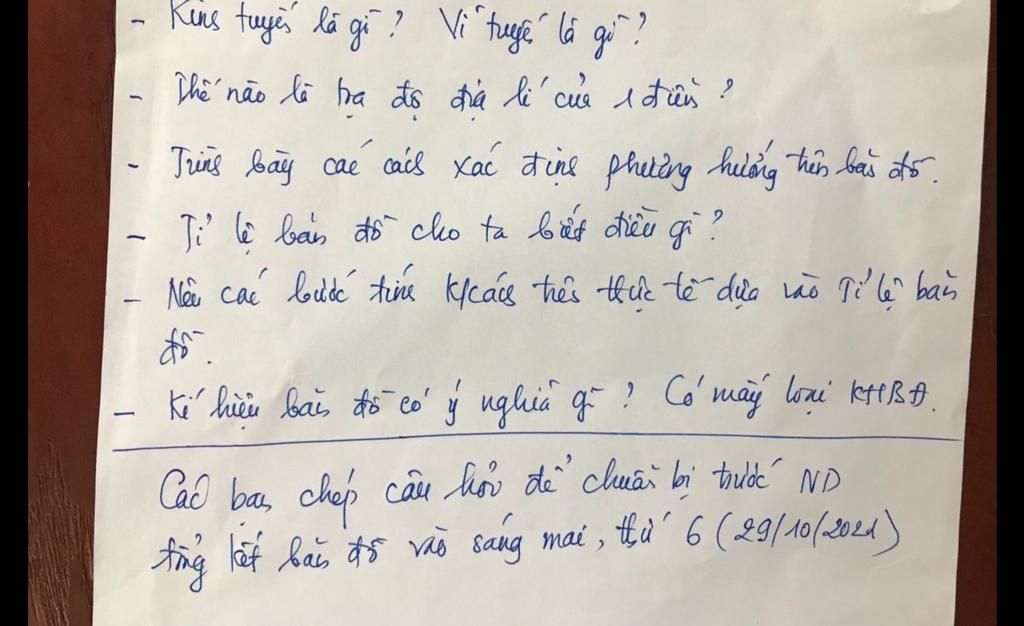 - Kinh tuyến là gì? Vĩ tuyến là gì?
- Thế nào là tọa độ địa lí của 1 điểm?
- Trình bày các cách xác định phương hướng trên bản đồ.
- Tỉ lệ bản đồ cho ta biết điều gì?
- Nêu các bước tính k/cách trên thực tế dựa vào Tỉ lệ bản
đồ.
- Kí hiệu bản đồ có ý nghĩa gì? Có mấy loại KHBĐ.
Các bạn chép câu hỏi để chuẩn bị trước ND
tổng kết bản đồ vào sáng mai, thứ 6 (29/10/2021)